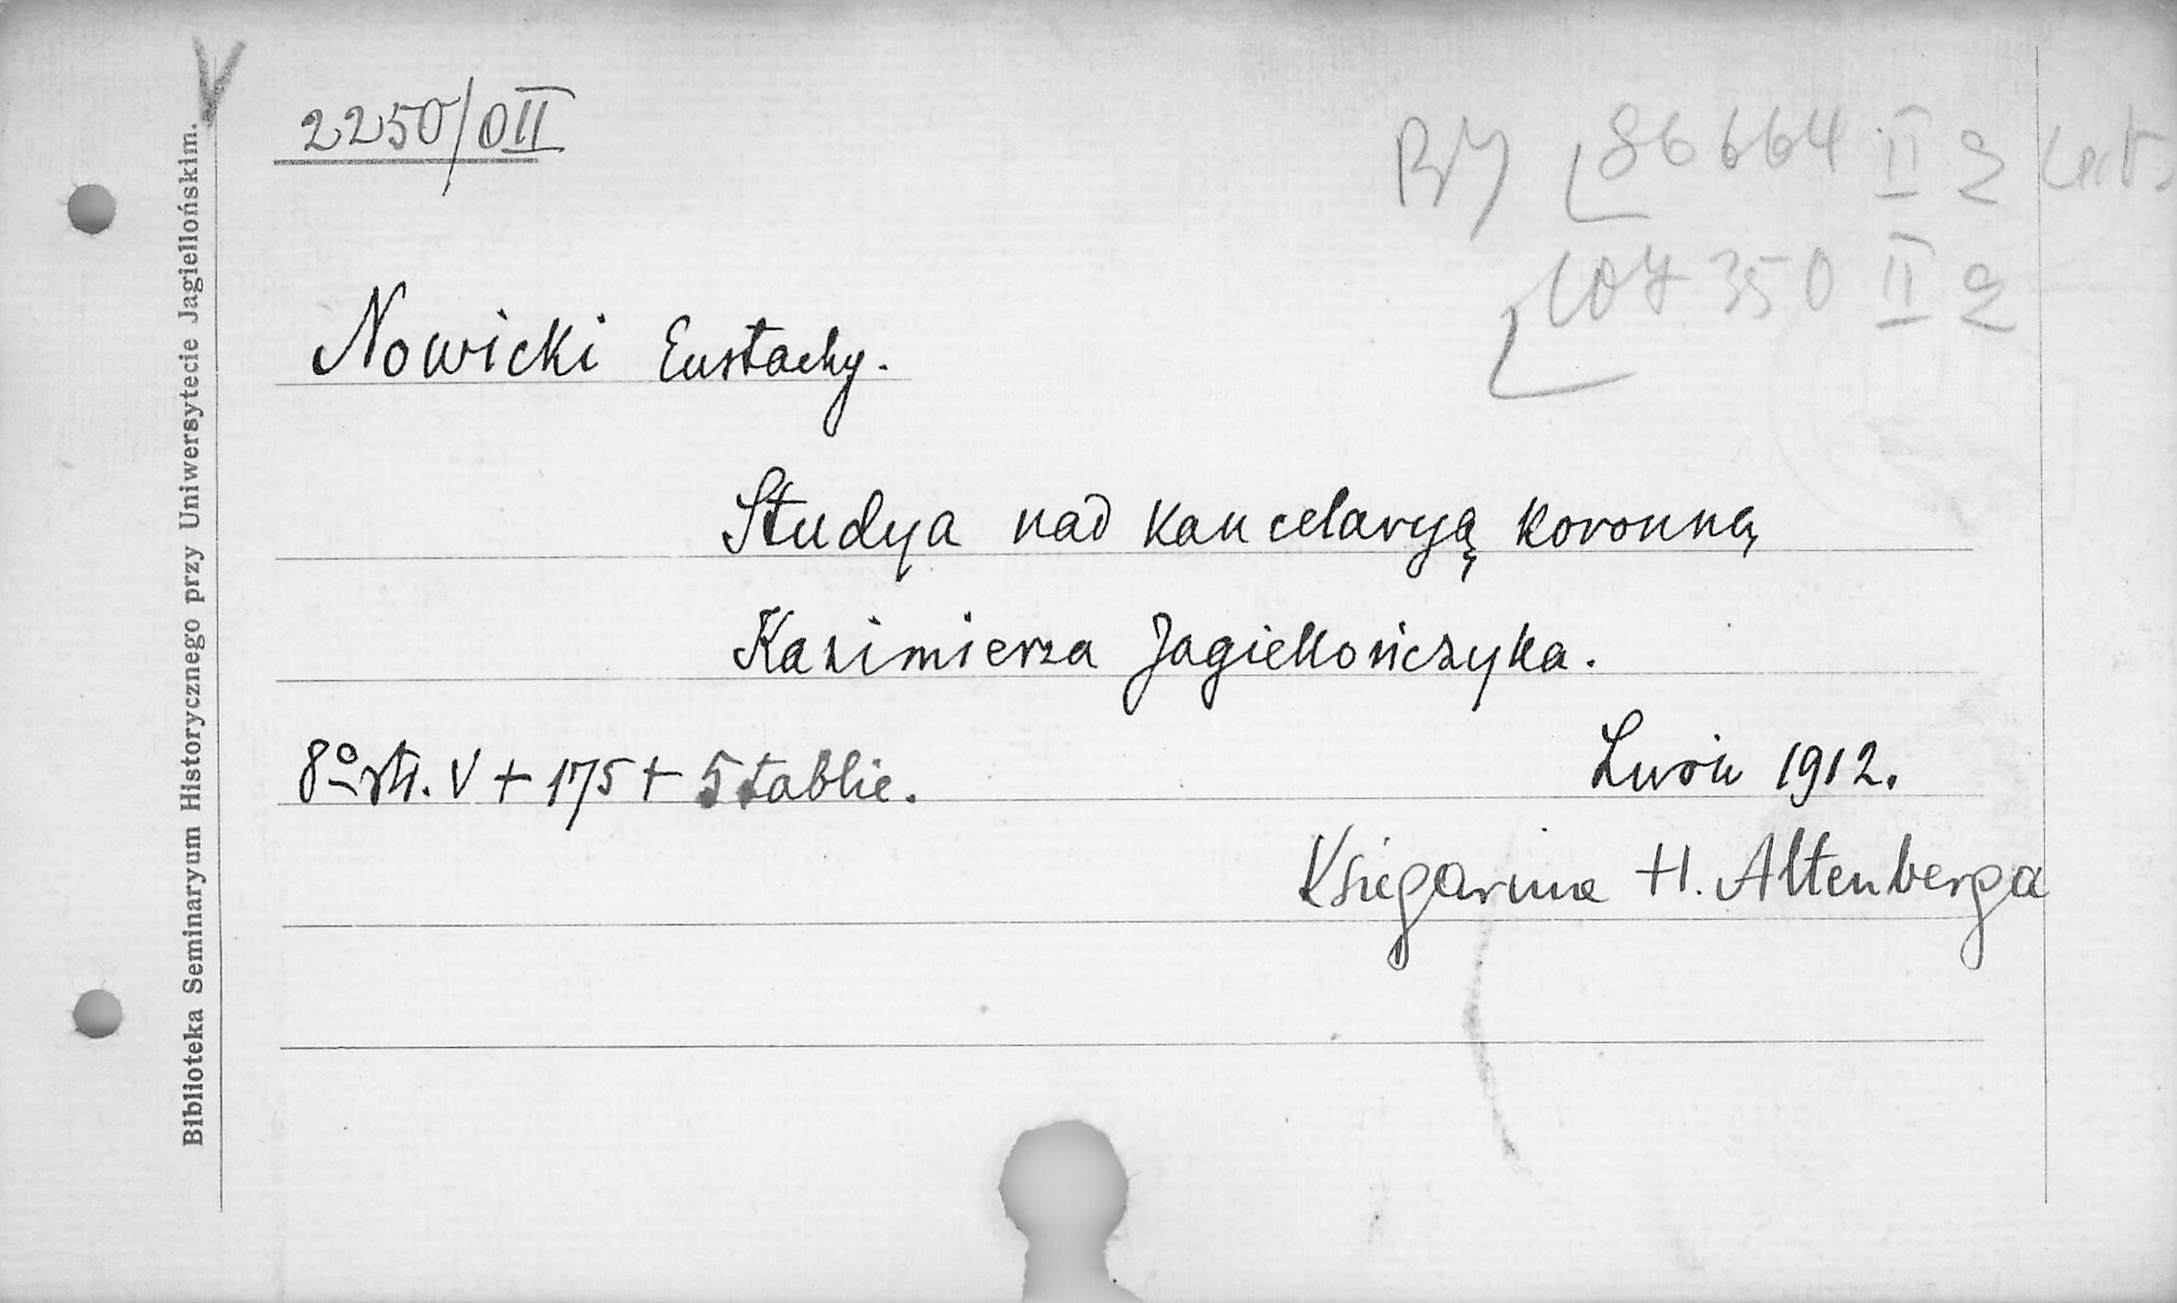 2250/0II
BJ 86664 II 2
107350 II 2
Nowicki Eustachy.
Studya nad kancelaryą koronną
Kazimierza Jagiellończyka.
8º str. V + 175 + 5 tablic.
Lwów 1912.
Księgarnia H. Altenberga
Biblioteka Seminaryum Historycznego przy Uniwersytecie Jagiellońskim.